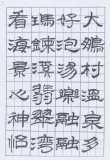 大鵬村溫泉多
好泡湯樂融融
瑪鍊溪翡翠灣
看海景心神怡